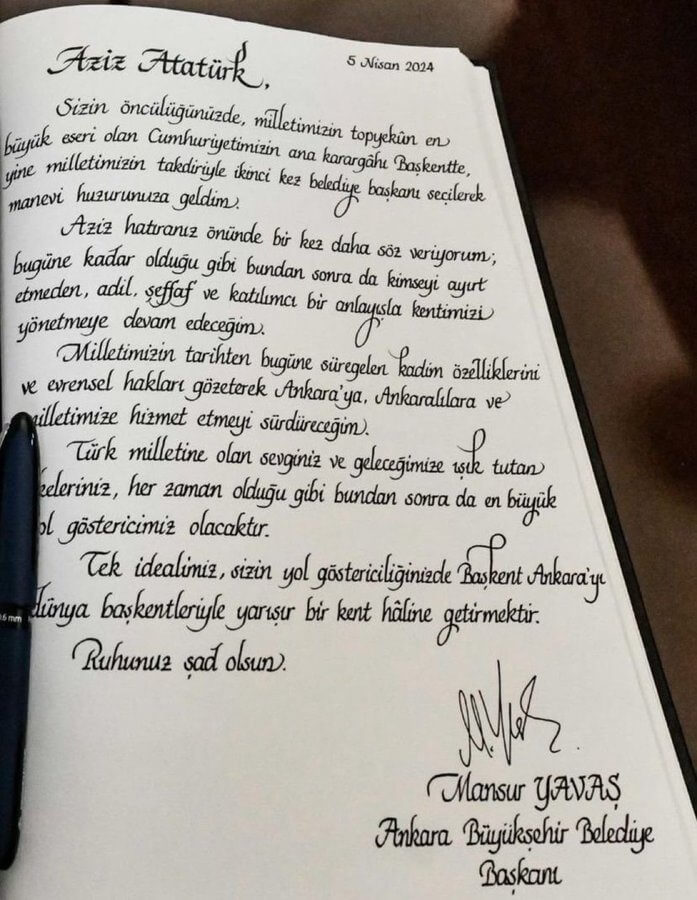 Aziz Atatürk,
5 Nisan 2024
Sizin öncülüğünüzde, milletimizin topyekûn en
büyük eseri olan Cumhuriyetimizin ana karargâhı Başkentte,
yine milletimizin takdiriyle ikinci kez belediye başkanı seçilerek
manevi huzurunuza geldim.
Aziz hatıranız önünde bir kez daha söz veriyorum;
bugüne kadar olduğu gibi bundan sonra da kimseyi ayırt
etmeden, adil, şeffaf ve katılımcı bir anlayışla kentimizi
yönetmeye devam edeceğim.
Milletimizin tarihten bugüne süregelen kadim özelliklerini
ve evrensel hakları gözeterek Ankara'ya, Ankaralılara ve
milletimize hizmet etmeyi sürdüreceğim.
Türk milletine olan sevginiz ve geleceğimize ışık tutan
keleriniz, her zaman olduğu gibi bundan sonra da en büyük
ol göstericimiz olacaktır.
Tek idealimiz, sizin yol göstericiliğinizde Başkent Ankara'yı
dünya başkentleriyle yarışır bir kent hâline getirmektir.
Ruhunuz şad olsun.
Mansur YAVAŞ
Ankara Büyükşehir Belediye
Başkanı
0.6 mm